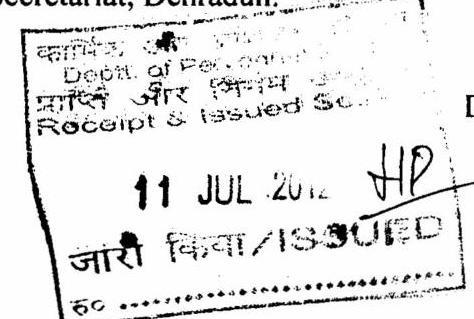 Secretariat, Dehradun.
कार्मिक और
Deptt. of
प्राप्ति और निर्गम
Receipt & Issued
D
11 JUL
HP
जारी किया/ISSUED
ह०